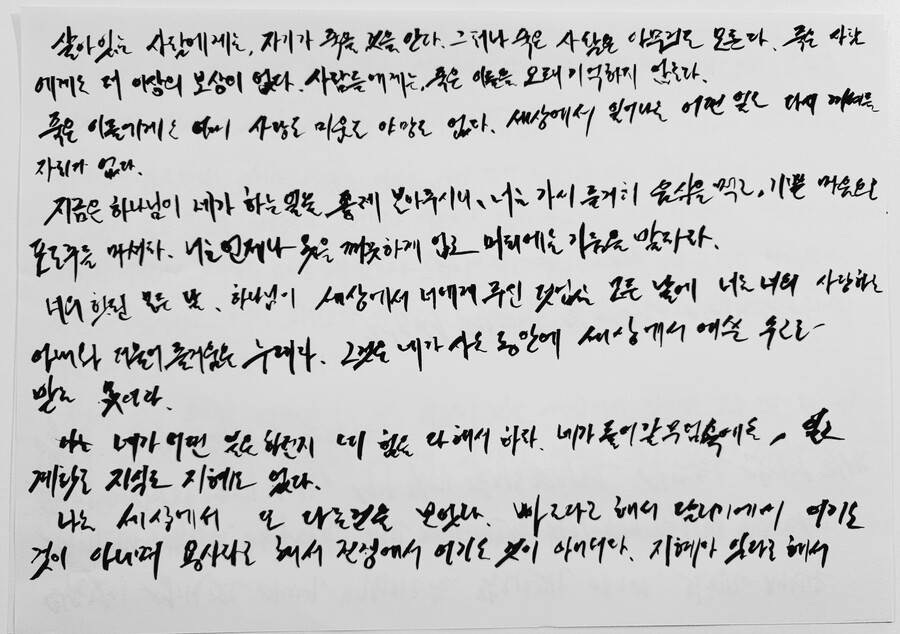 살아있는 사람에게는, 자기가 죽을 것을 안다. 그러나 죽은 사람은 아무것도 모른다. 죽은 사람
에게는 더 이상의 보상이 없다. 사람들에게는, 죽은 이들을 오래 기억하지 않는다.
죽은 이들에게는 이미 사랑도 미움도 야망도 없다. 세상에서 일어나는 어떤 일도 다시 끼어들
자리가 없다.
지금은 하나님이 네가 하는 일을 좋게 보아주시니, 너는 가서 즐거이 음식을 먹고, 기쁜 마음으로
포도주를 마셔라. 너는 언제나 옷을 깨끗하게 입고 머리에는 기름을 발라라.
너의 헛된 모든 날, 하나님이 세상에서 너에게 주신 덧없는 모든 날에 너는 너의 사랑하는
아내와 더불어 즐거움을 누려라. 그것은 네가 사는 동안에 세상에서 애쓴 수고로
받는 몫이다.
너는 네가 어떤 일을 하든지 네 힘을 다해서 하라. 네가 들어갈 무덤 속에는, 일도
계획도 지식도 지혜도 없다.
나는 세상에서 또 다른 것을 보았다. 빠르다고 해서 달리기에서 이기는
것이 아니며 용사라고 해서 전쟁에서 이기는 것이 아니더라. 지혜가 있다고 해서